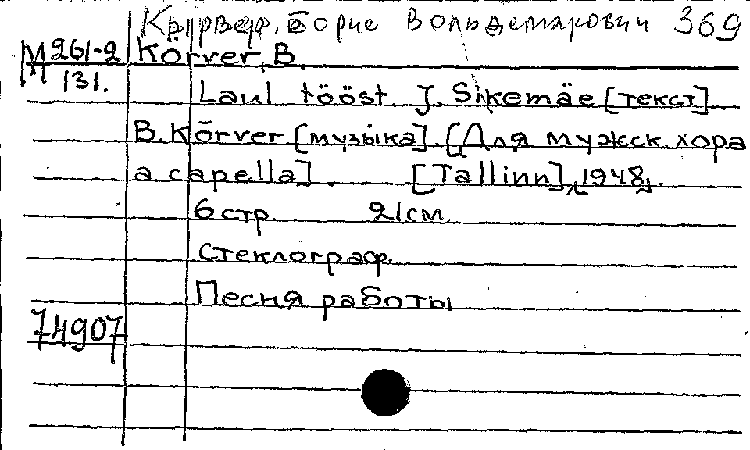 Кырвер, Борис Вольдемарович 369
М 261-2 Kõrver, B.
131.
Laul tööst J. Sikemäe [текст]
B. Kõrver [музыка]. [Для мужск. хора
a capella]. [Tallinn], [1948].
6 стр. 21 см.
Стеклограф.
Песня работы
74907